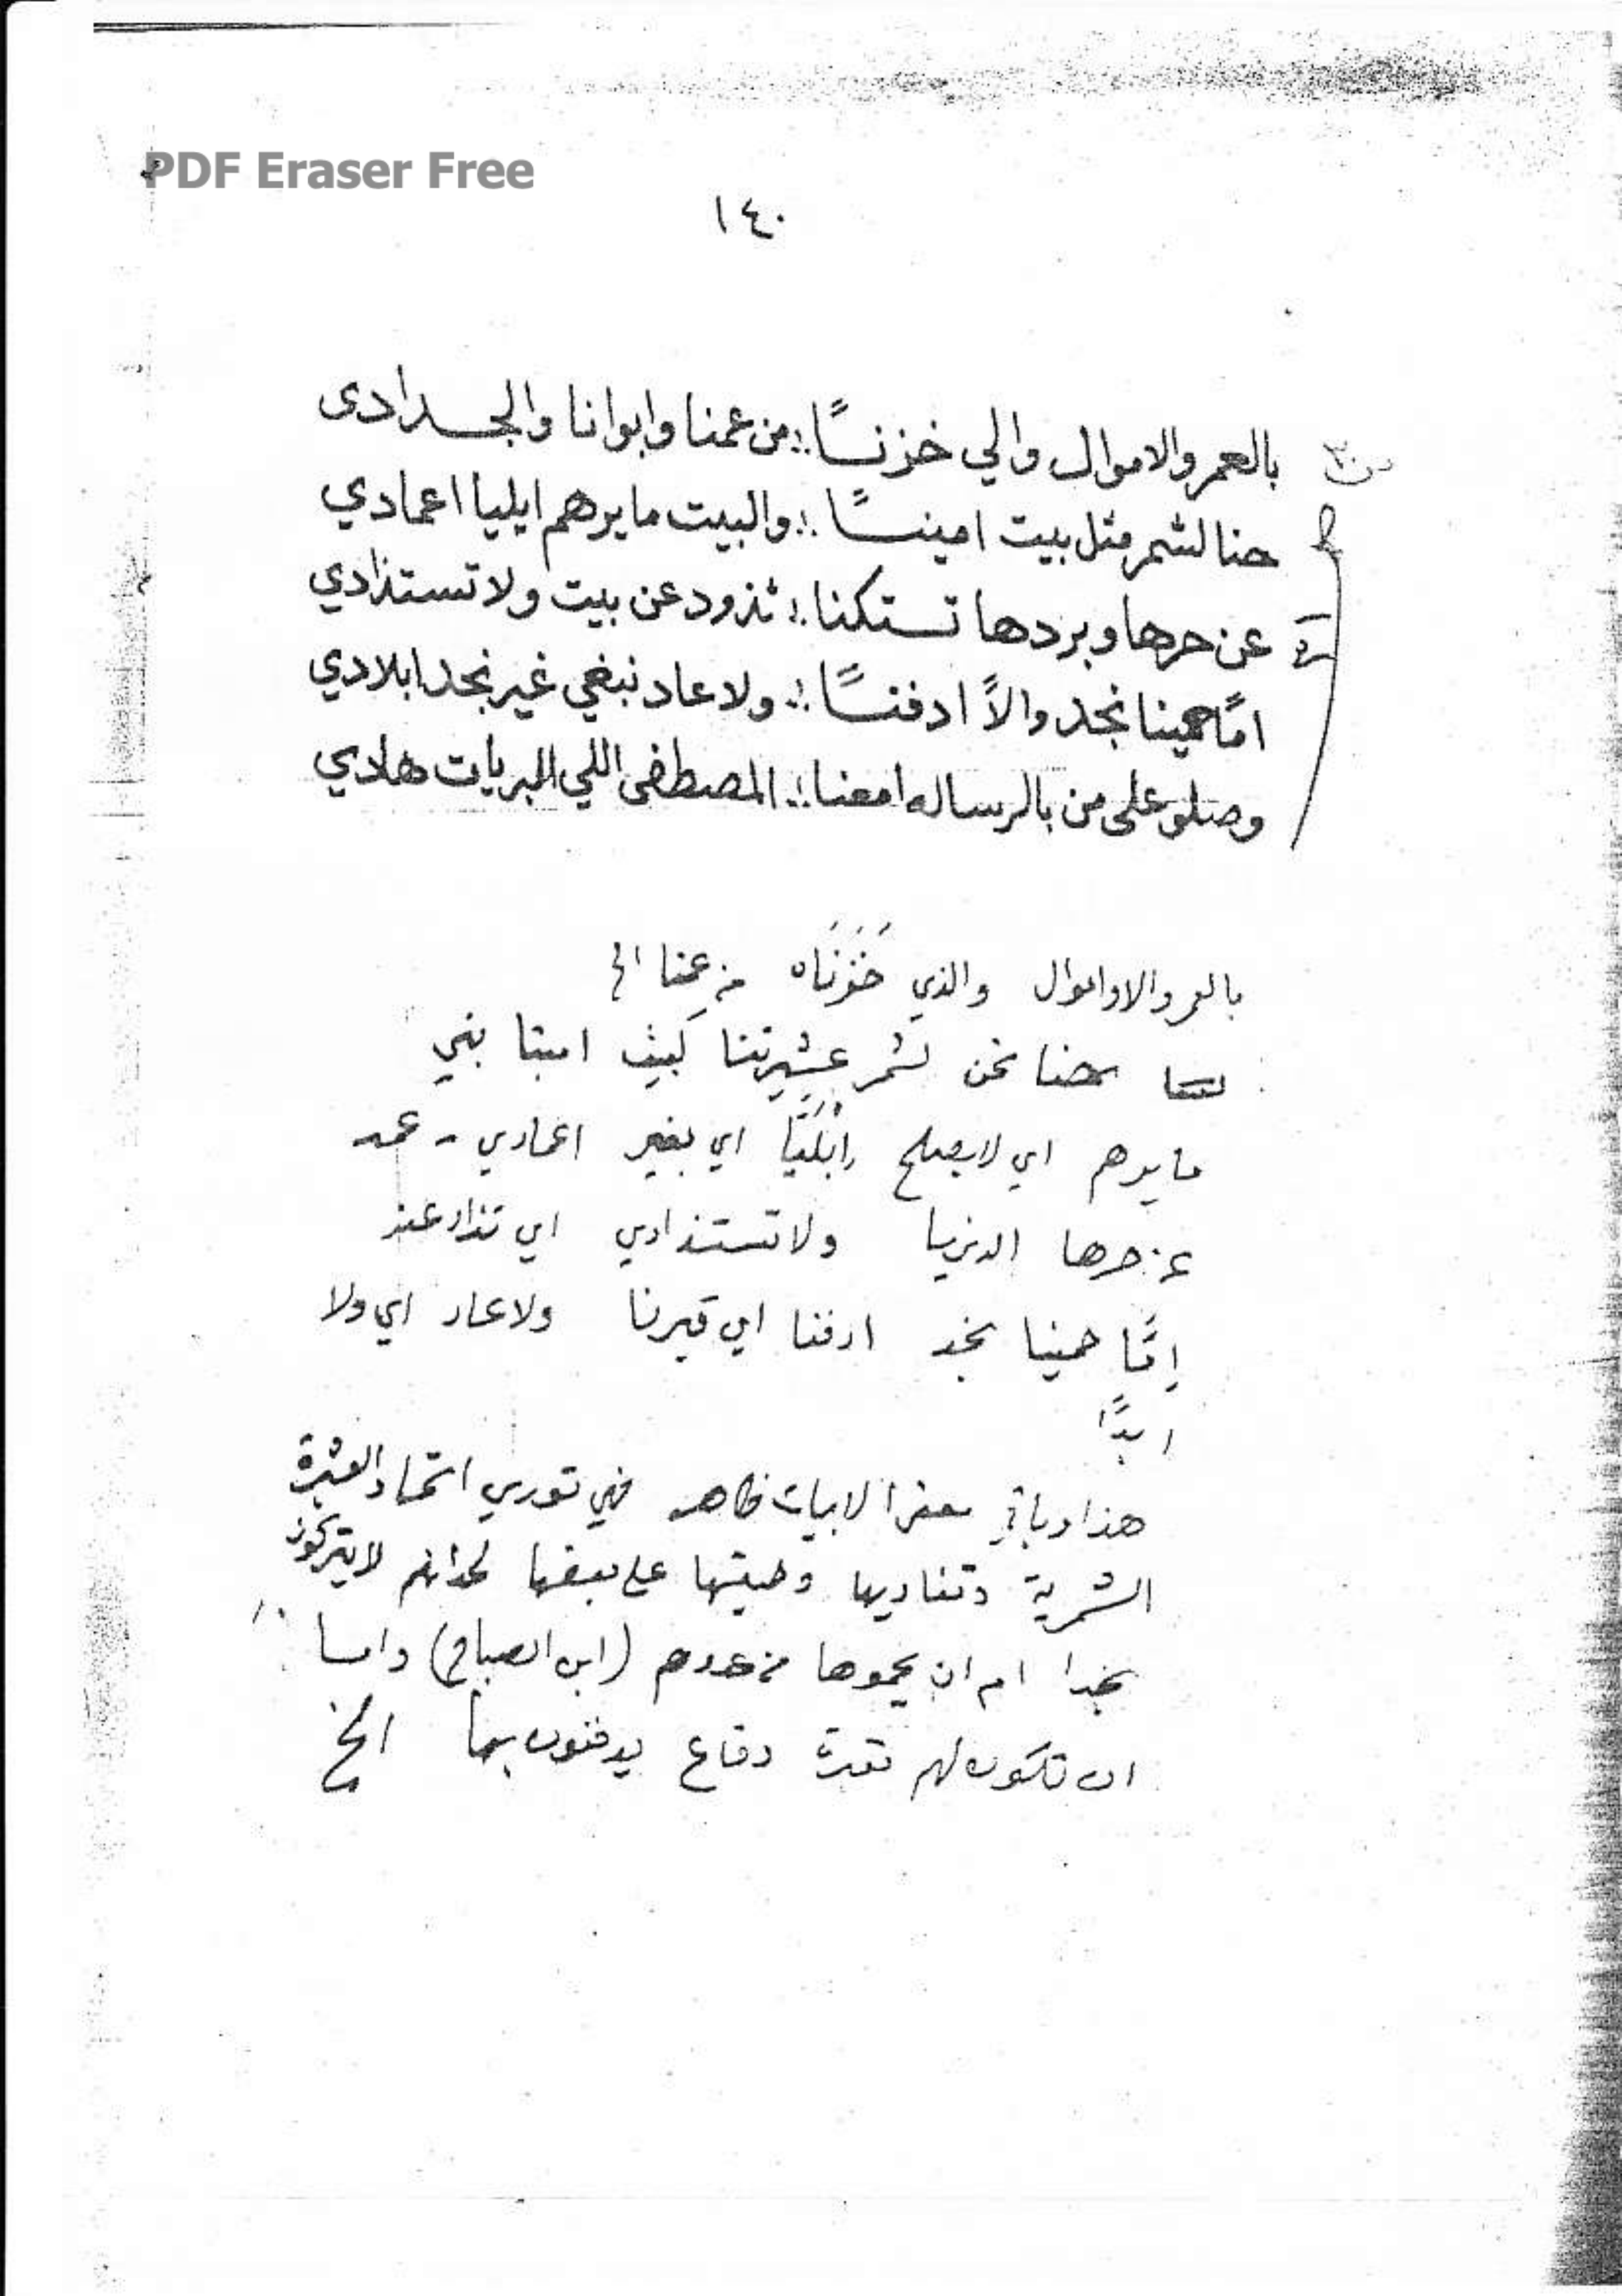 PDF Eraser Free
١٤٠
بالعمر والاموال والي خزنـــاً ؛ من عمنا وابوانا والجـــدادى
حنا لشمر مثل بيت امينـــاً ؛ والبيت ما يرهم ايليا اعمادي
عن حرها وبردها تستكنا ؛ تذود عن بيت ولا تستذادي
امّا حمينا نجد والاً ادفنـــاً ؛ ولا عاد نبغي غير نجد ابلادي
وصلو على من بالرساله امعنا ؛ المصطفى اللي البريات هادي
بالعمر والاموال والذي خَزَنَاه من عمنا الخ
حنا نحن لشمر عشيرتنا كبيت امبنا بني
ما يرهم اي لا يصلح ابليّا اي بغير اعمادي - عمد
عن حرها الدنيا ولا تستذادي اي تذاد عند
إمّا حمينا نجد ادفنا اي قبرنا ولا عاد اي ولا
ابدًا
هذا وباقي بعض الابيات ظاهر فهي توري اتحاد العشيرة
الشمرية وتفاديها على بعضها لا يتركون
نجدا ام ان يحموها من عدوهم (ابن الصباح) واما
ان تكون لهم دفاع يدفنون بها الخ